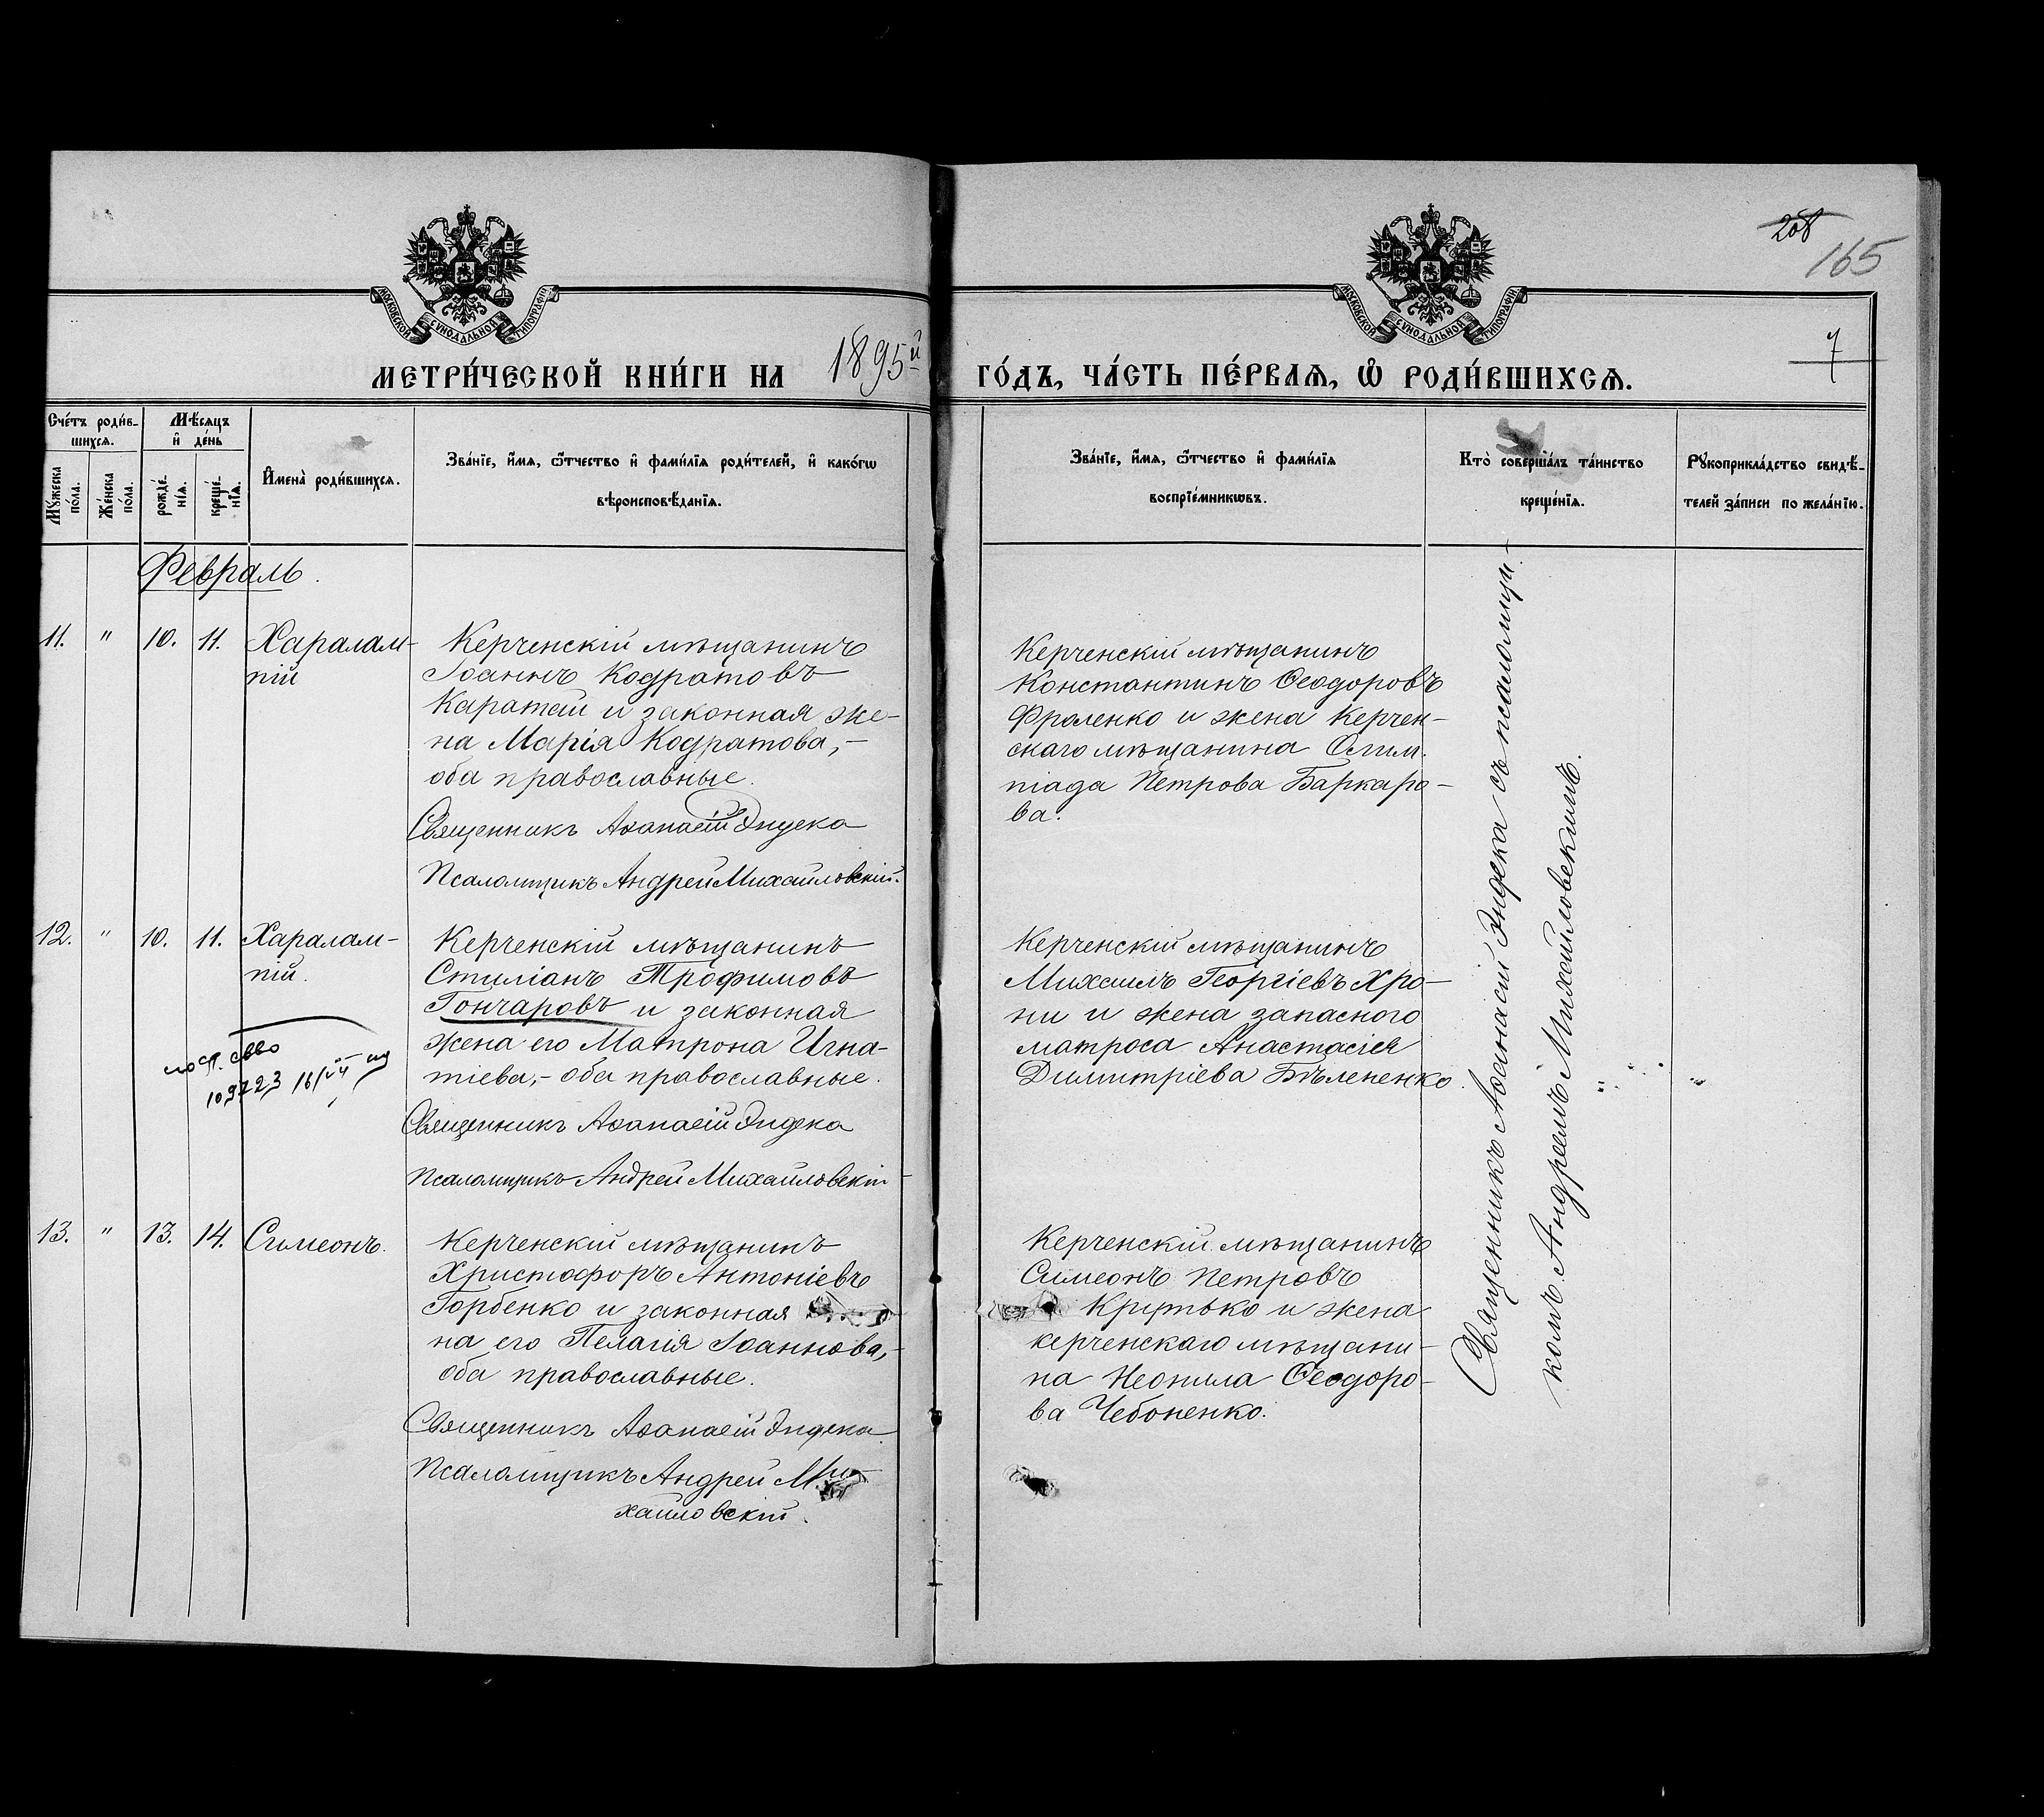 208
165
7
МОСКОВСКОЙ СѴНОДАЛЬНОЙ ТИПОГРАФІИ
МОСКОВСКОЙ СѴНОДАЛЬНОЙ ТИПОГРАФІИ
МЕТРИ́ЧЕСКОЙ КНИ́ГИ НА 1895й
ГО́ДЪ, ЧА́СТЬ ПЕ́РВАѦ, Ѽ РОДИ́ВШИХСѦ.
Сче́тъ роди́в-
шихсѧ.
Мѣ́сѧцъ
и҆ де́нь
Мꙋ́жеска
по́ла.
Же́нска
по́ла.
рожде́-
нїѧ.
креще́-
нїѧ.
И҆мена̀ роди́вшихсѧ.
Зва́нїе, и҆́мѧ, ѻ҆́тчество и҆ фами́лїѧ роди́телей, и҆ како́гѡ
вѣроисповѣ́данїѧ.
Зва́нїе, и҆́мѧ, ѻ҆́тчество и҆ фами́лїѧ
воспрїе́мникѡвъ.
Кто̀ соверша́лъ та́инство
креще́нїѧ.
Рꙋкоприкла́дство свидѣ́-
телей за́писи по жела́нїю.
Февраль.
11. " 10. 11. Харалам-
пій
Керченскій мѣщанинъ
Іоаннъ Кодратовъ
Каратай и законная же-
на Марія Кодратова,-
оба православные.
Священникъ Аѳанасій Эндека
Псаломщикъ Андрей Михайловскій.
Керченскій мѣщанинъ
Константинъ Ѳеодоровъ
Фроленко и жена Керчен-
скаго мѣщанина Олим-
піада Петрова Баркаро-
ва.
12. " 10. 11. Харалам-
пій.
Керченскій мѣщанинъ
Стиліанъ Трофимовъ
Гончаровъ и законная
жена его Матрона Игна-
тіева,- оба православные.
Священникъ Аѳанасій Эндека
Псаломщикъ Андрей Михайловскій
109723
Керченскій мѣщанинъ
Михаилъ Георгіевъ Хро-
ни и жена запасного
матроса Анастасія
Димитріева Бѣлененко.
13. " 13. 14. Симеонъ.
Керченскій мѣщанинъ
Христофоръ Антоніевъ
Горбенко и законная
на его Пелагія Іоаннова,-
оба православные.
Священникъ Аѳанасій Эндека.
Псаломщикъ Андрей Ми-
хайловскій.
Керченскій мѣщанинъ
Симеонъ Петровъ
Крутько и жена
керченскаго мѣщани-
на Неонила Ѳеодоро-
ва Чебоненко.
Священникъ Аѳанасій Эндека съ псаломщи-
комъ Андреемъ Михайловскимъ.